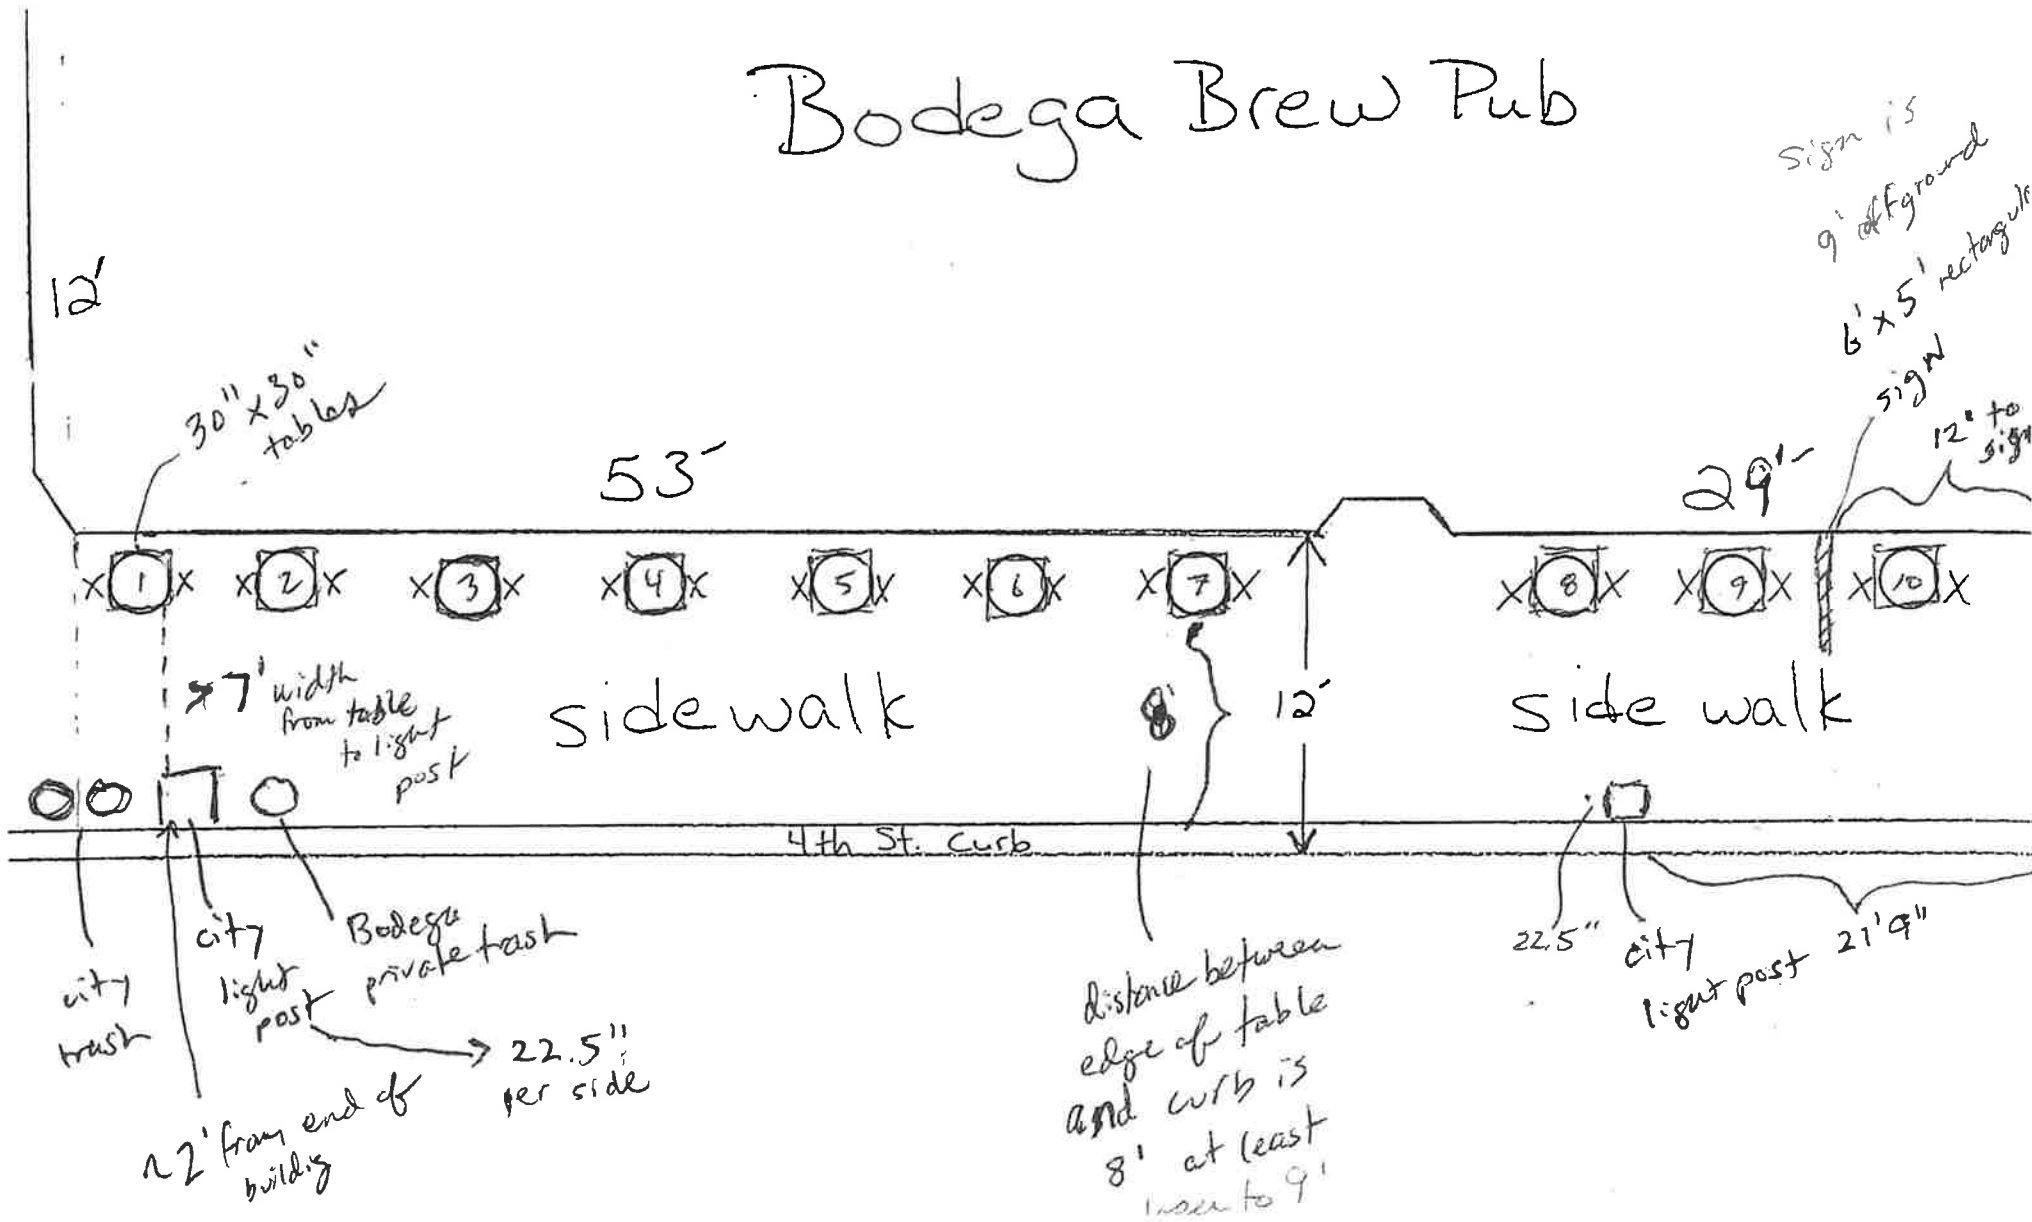 Bodega Brew Pub
sign is
9' off ground
6' x 5'
sign
12' to
12'
30" x 30"
tables
53'
29'
1
2
3
4
5
6
7
8
9
10
7' width
from table
to light
post
sidewalk
8'
12'
side walk
4th St. Curb
city
trash
city
light
post
Bodega
private trash
22.5"
per side
~2' from end of
buildig
distance between
edge of table
and curb is
8' at least
to 9'
22.5"
city
light post
21'9"